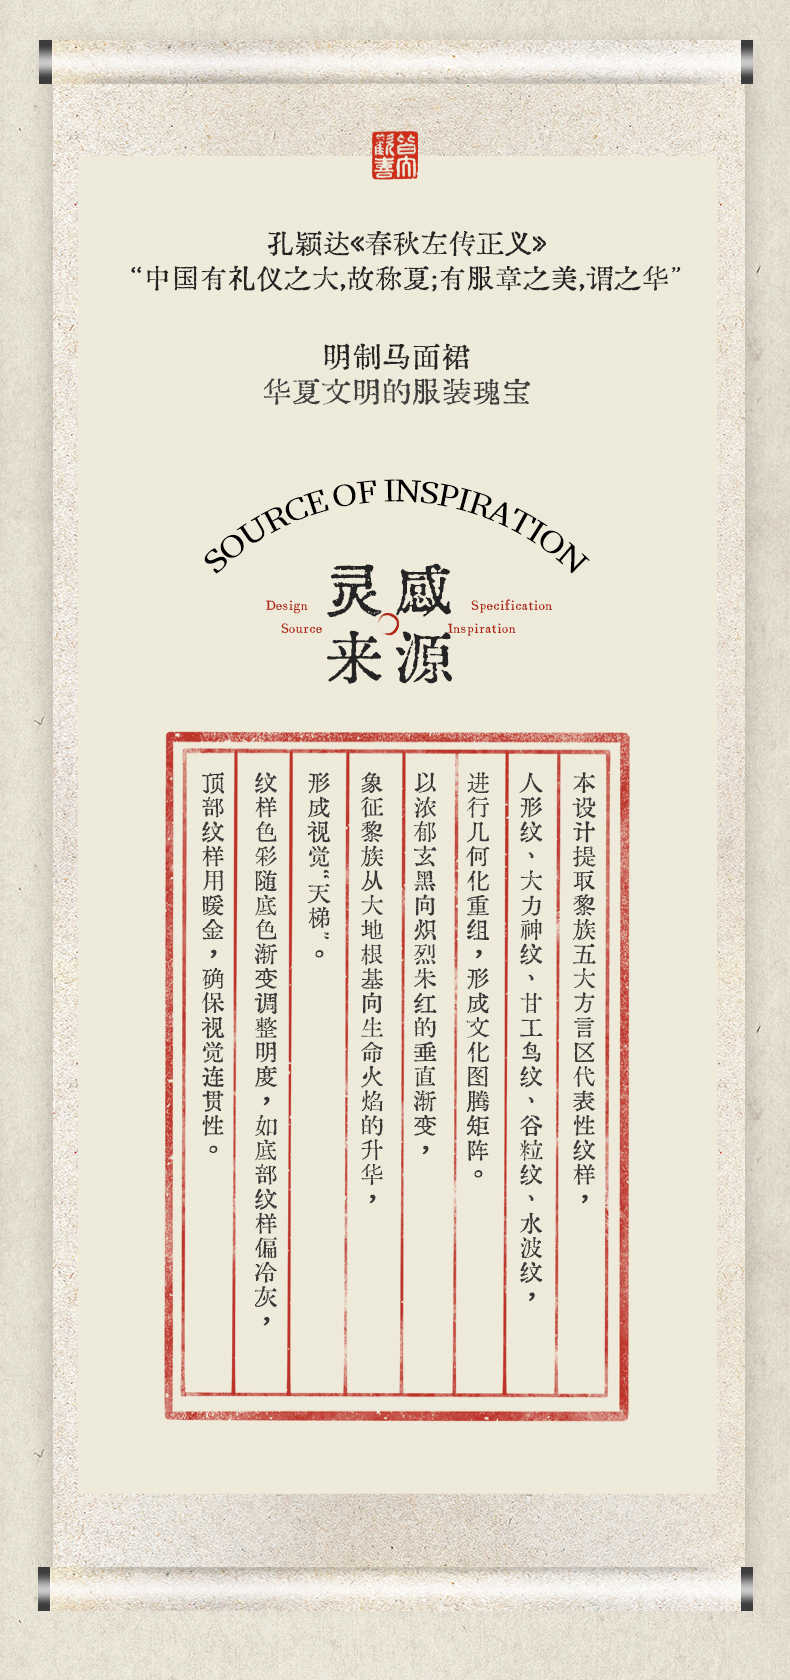 孔颖达《春秋左传正义》
“中国有礼仪之大,故称夏;有服章之美,谓之华”
明制马面裙
华夏文明的服装瑰宝
SOURCE OF INSPIRATION
灵感
来源
Design
Source
Specification
Inspiration
本设计提取黎族五大方言区代表性纹样，
人形纹、大力神纹、甘工鸟纹、谷粒纹、水波纹，
进行几何化重组，形成文化图腾矩阵。
以浓郁玄黑向炽烈朱红的垂直渐变，
象征黎族从大地根基向生命火焰的升华，
形成视觉“天梯”。
纹样色彩随底色渐变调整明度，如底部纹样偏冷灰，
顶部纹样用暖金，确保视觉连贯性。